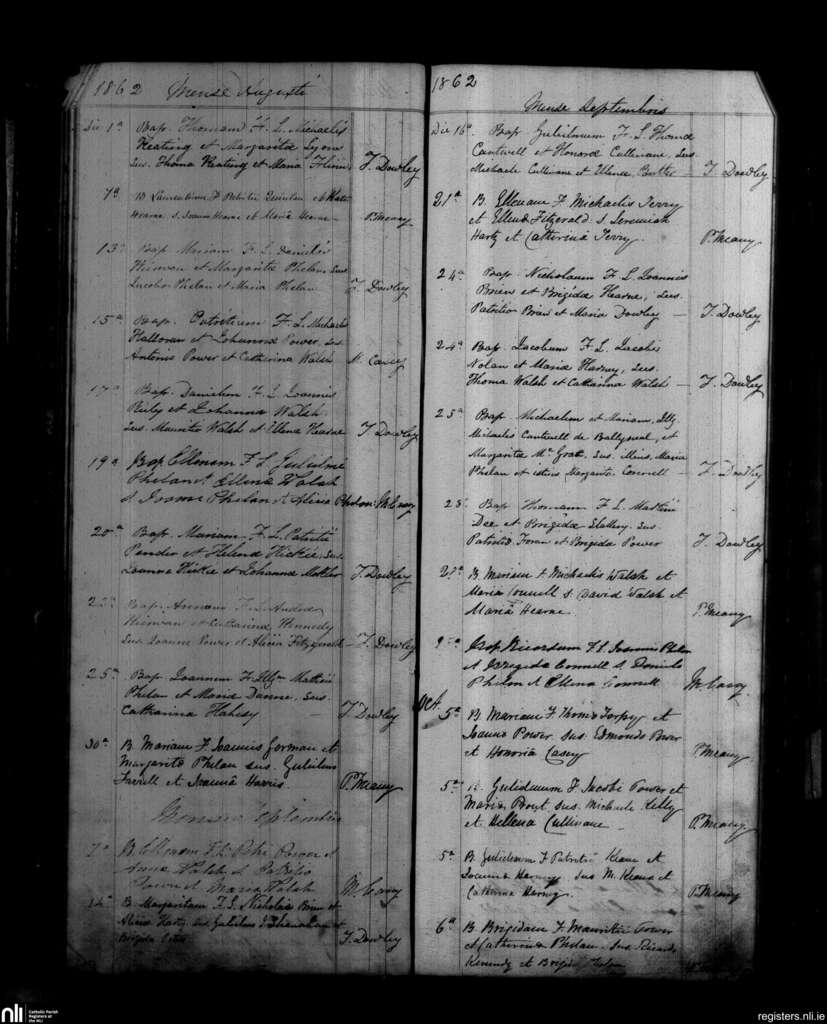 1862 Mense Augusti
Die 1ª Bap. Thomam F. L. Michaelis
Keating et Margarita Lyons
Sus. Thoma Keating et Maria Flinn T. Dowley
7ª B. Laurentium F Patritii Quinlan et
Hearne s. Joanne Hearne et Maria Hearne P. Meany
13ª Bap Mariam F. L. Danielis
Kirwan et Margarita Phelan, Sus
Jacobo Phelan et Maria Phelan T. Dowley
15ª Bap. Patritium F. L. Michaelis
Halloran et Johanna Power, Sus
Antonio Power et Catharina Walsh M. Casey
17ª Bap. Danielem F. L. Joannis
Rily et Johanna Walsh
Sus. Mauritio Walsh et Ellena Hearne T. Dowley
19ª Bap Ellenam F L Gulielmi
Phelan et Ellena Walsh
s Joanne Phelan et Alicia Phelan M Casey
20ª Bap. Mariam F. L. Patritii
Pender et Helena Hickie, Sus
Joanne Hickie et Johanna T. Dowley
Bap. Annam F. L. Andrea
Kirwan et Catharina Kennedy
Sus. Joanne Power et Alicia Fitzgerald T. Dowley
25ª Bap Joannem F. Illm Mathei
Phelan et Maria Dunne Sus.
Catharina Hahesy T. Dowley
30ª B. Mariam F. Joannis Gorman et
Margarita Phelan sus. Gulielmo
Farrell et Joanna Harris. P. Meany
Mense Septembris
7ª B. Ellenam F L Petri Power et
Anna Walsh s Patritio
Power et Maria Walsh M. Casey
14ª B. Margaritam F. L. Nicholai Brien et
Alicia Harty Sus Gulielmo et
Brigida T. Dowley
1862
Mense Septembris
Die 16ª Bap Gulielmum F. L Thoma
Cantwell et Honora Cullinane, Sus.
Michaele Cullinane et Ellena Butler T. Dowley
21ª B. Ellenam F Michaelis Terry
et Ellena Fitzgerald s Jeremiah
Harty et Catherina Terry. P. Meany
24ª Bap. Nicholaum F L Joannis
Brien et Brigida Hearne, Sus.
Patritio Brien et Maria Dowley T. Dowley
24ª Bap. Jacobum F. L. Jacobi
Nolan et Maria, Sus.
Thoma Walsh et Catharina Walsh T. Dowley
25ª Bap Michaelem et Mariam, Illg
Michaelis Cantwell de, et
Margarita Mc Grath. Sus. Maria
Phelan et Margarita Connell T. Dowley
28ª Bap Thomam F. L. Mathei
Dee et Brigida Slattery. Sus.
Patritio Foran et Brigida Power T. Dowley
B. Mariam F Michaelis Walsh et
Maria Connell s David Walsh et
Maria Hearne. P. Meany
Bap Ricardum F L Joannis Phelan
et Brigida Connell s Daniele
Phelan et Ellena Connell M Casey
Oct. 5ª B Mariam F Thoma Torpy et
Joanna Power Sus. Edmondo Power
et Honoria Casey P. Meany
5ª B. Gulielmum F Jacobi Power et
Maria Prout Sus. Michaele Kelly
et Hellena Cullinane P. Meany
5ª B Gulielmum F Patritii Keane et
Joanna Harney Sus M. Keane et
Catherina Harney. P. Meany
6ª B Brigidam F Mauritii Power
et Catherina Phelan Sus Ricardo
Kennedy et Brigida Phelan
nli Catholic Parish
Registers at
the NLI
registers.nli.ie